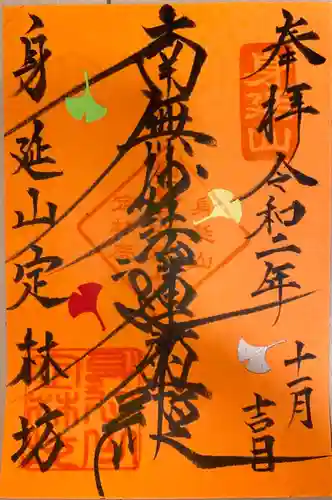 奉拝 令和二年
十一月
吉日
南無妙法蓮華経
身延山定林坊
身延山